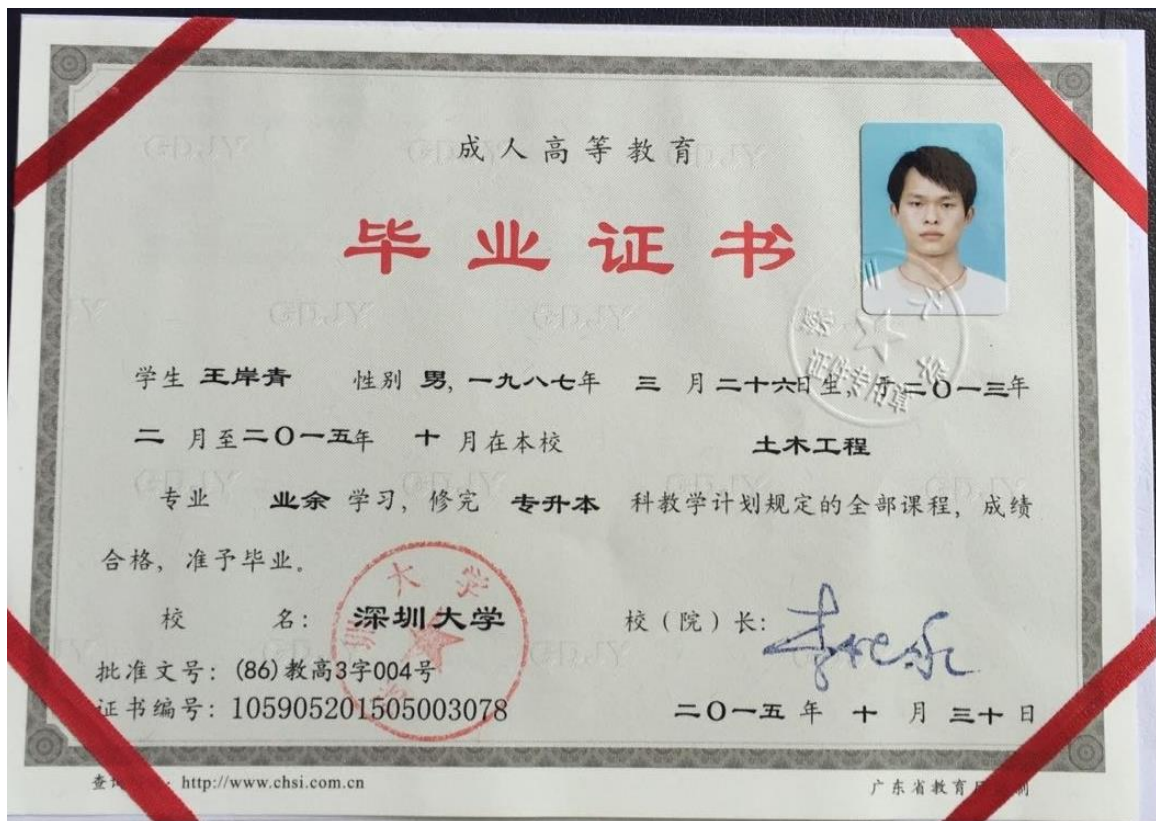 成人高等教育
毕业证书
学生 王岸青 性别 男, 一九八七年 三 月二十六日生, 于二〇一三年
二 月至二〇一五年 十 月在本校 土木工程
专业 业余 学习, 修完 专升本 科教学计划规定的全部课程, 成绩
合格, 准予毕业。
校 名: 深圳大学
校(院)长:
批准文号: (86)教高3字004号
证书编号: 105905201505003078
二〇一五 年 十 月 三十 日
http://www.chsi.com.cn
广东省教育
深圳大学
证件专用章